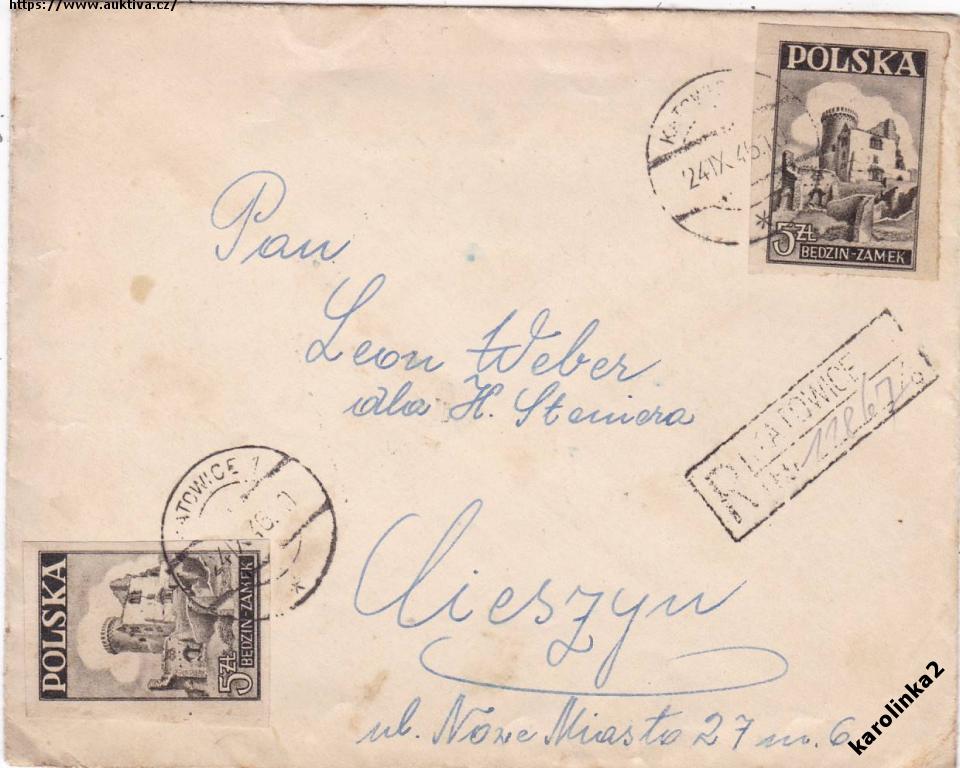 https://www.auktiva.cz/
POLSKA
5 ZŁ
BĘDZIN-ZAMEK
KATOWIC
24 IX. 46.
Pan
Leon Weber
dla H. Steniera
R KATOWICE 1
Nr 11867
KATOWICE 1
POLSKA
5 ZŁ
BĘDZIN-ZAMEK
Cieszyn
ul. Nowe Miasto 27 m. 6
karolinka2